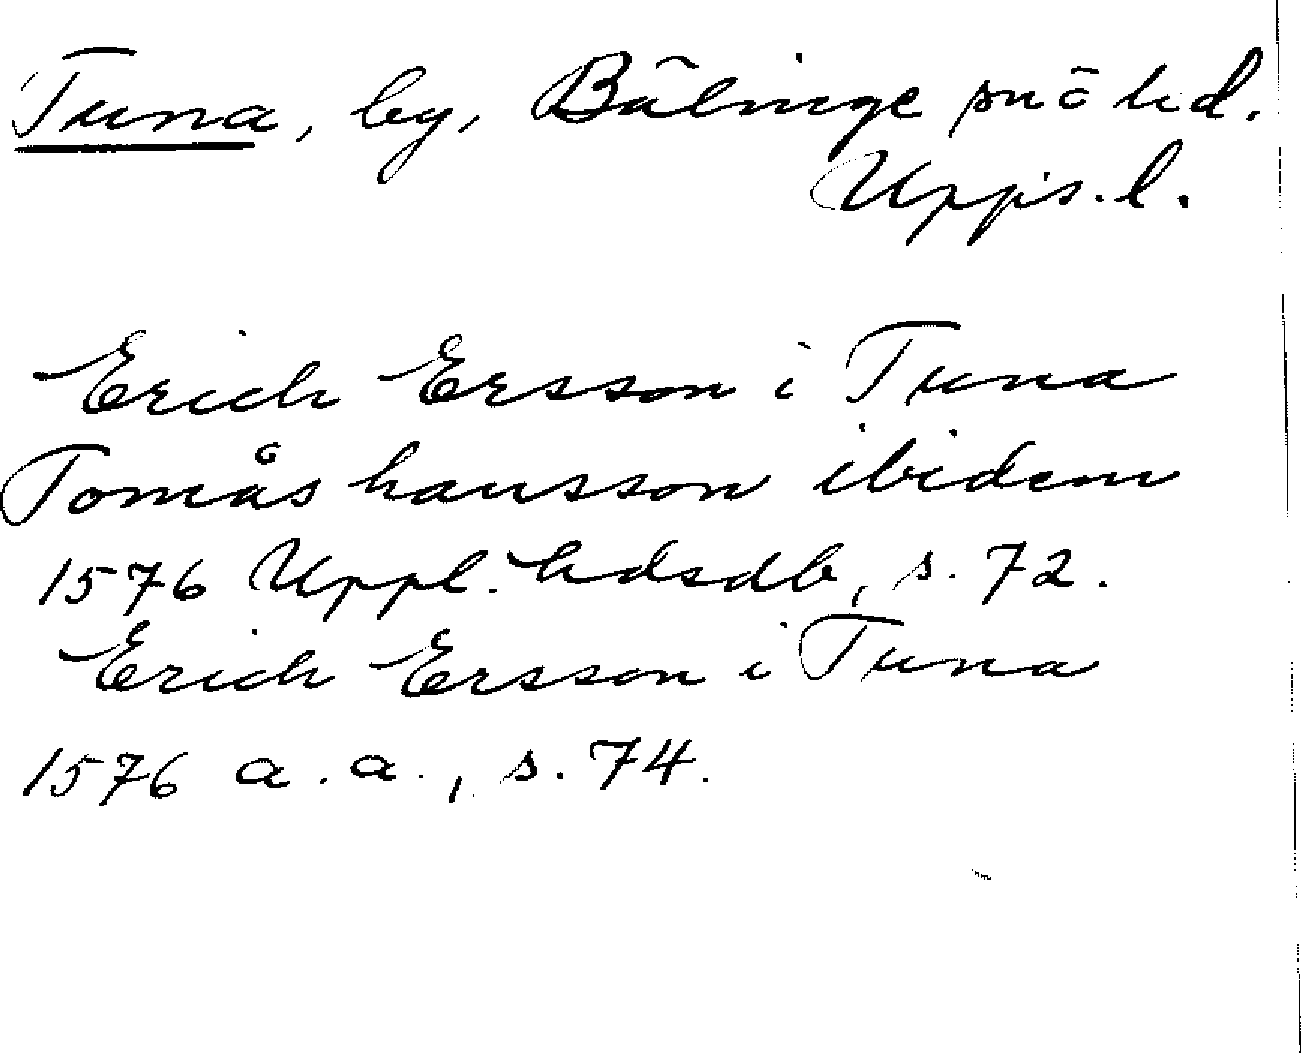 Tuna, by, Bälinge sn ö hd.
Upps. l.
Erich Ersson i Tuna
Tomås hansson ibidem
1576 Uppl. hdsdb, s. 72.
Erich Ersson i Tuna
1576 a. a., s. 74.